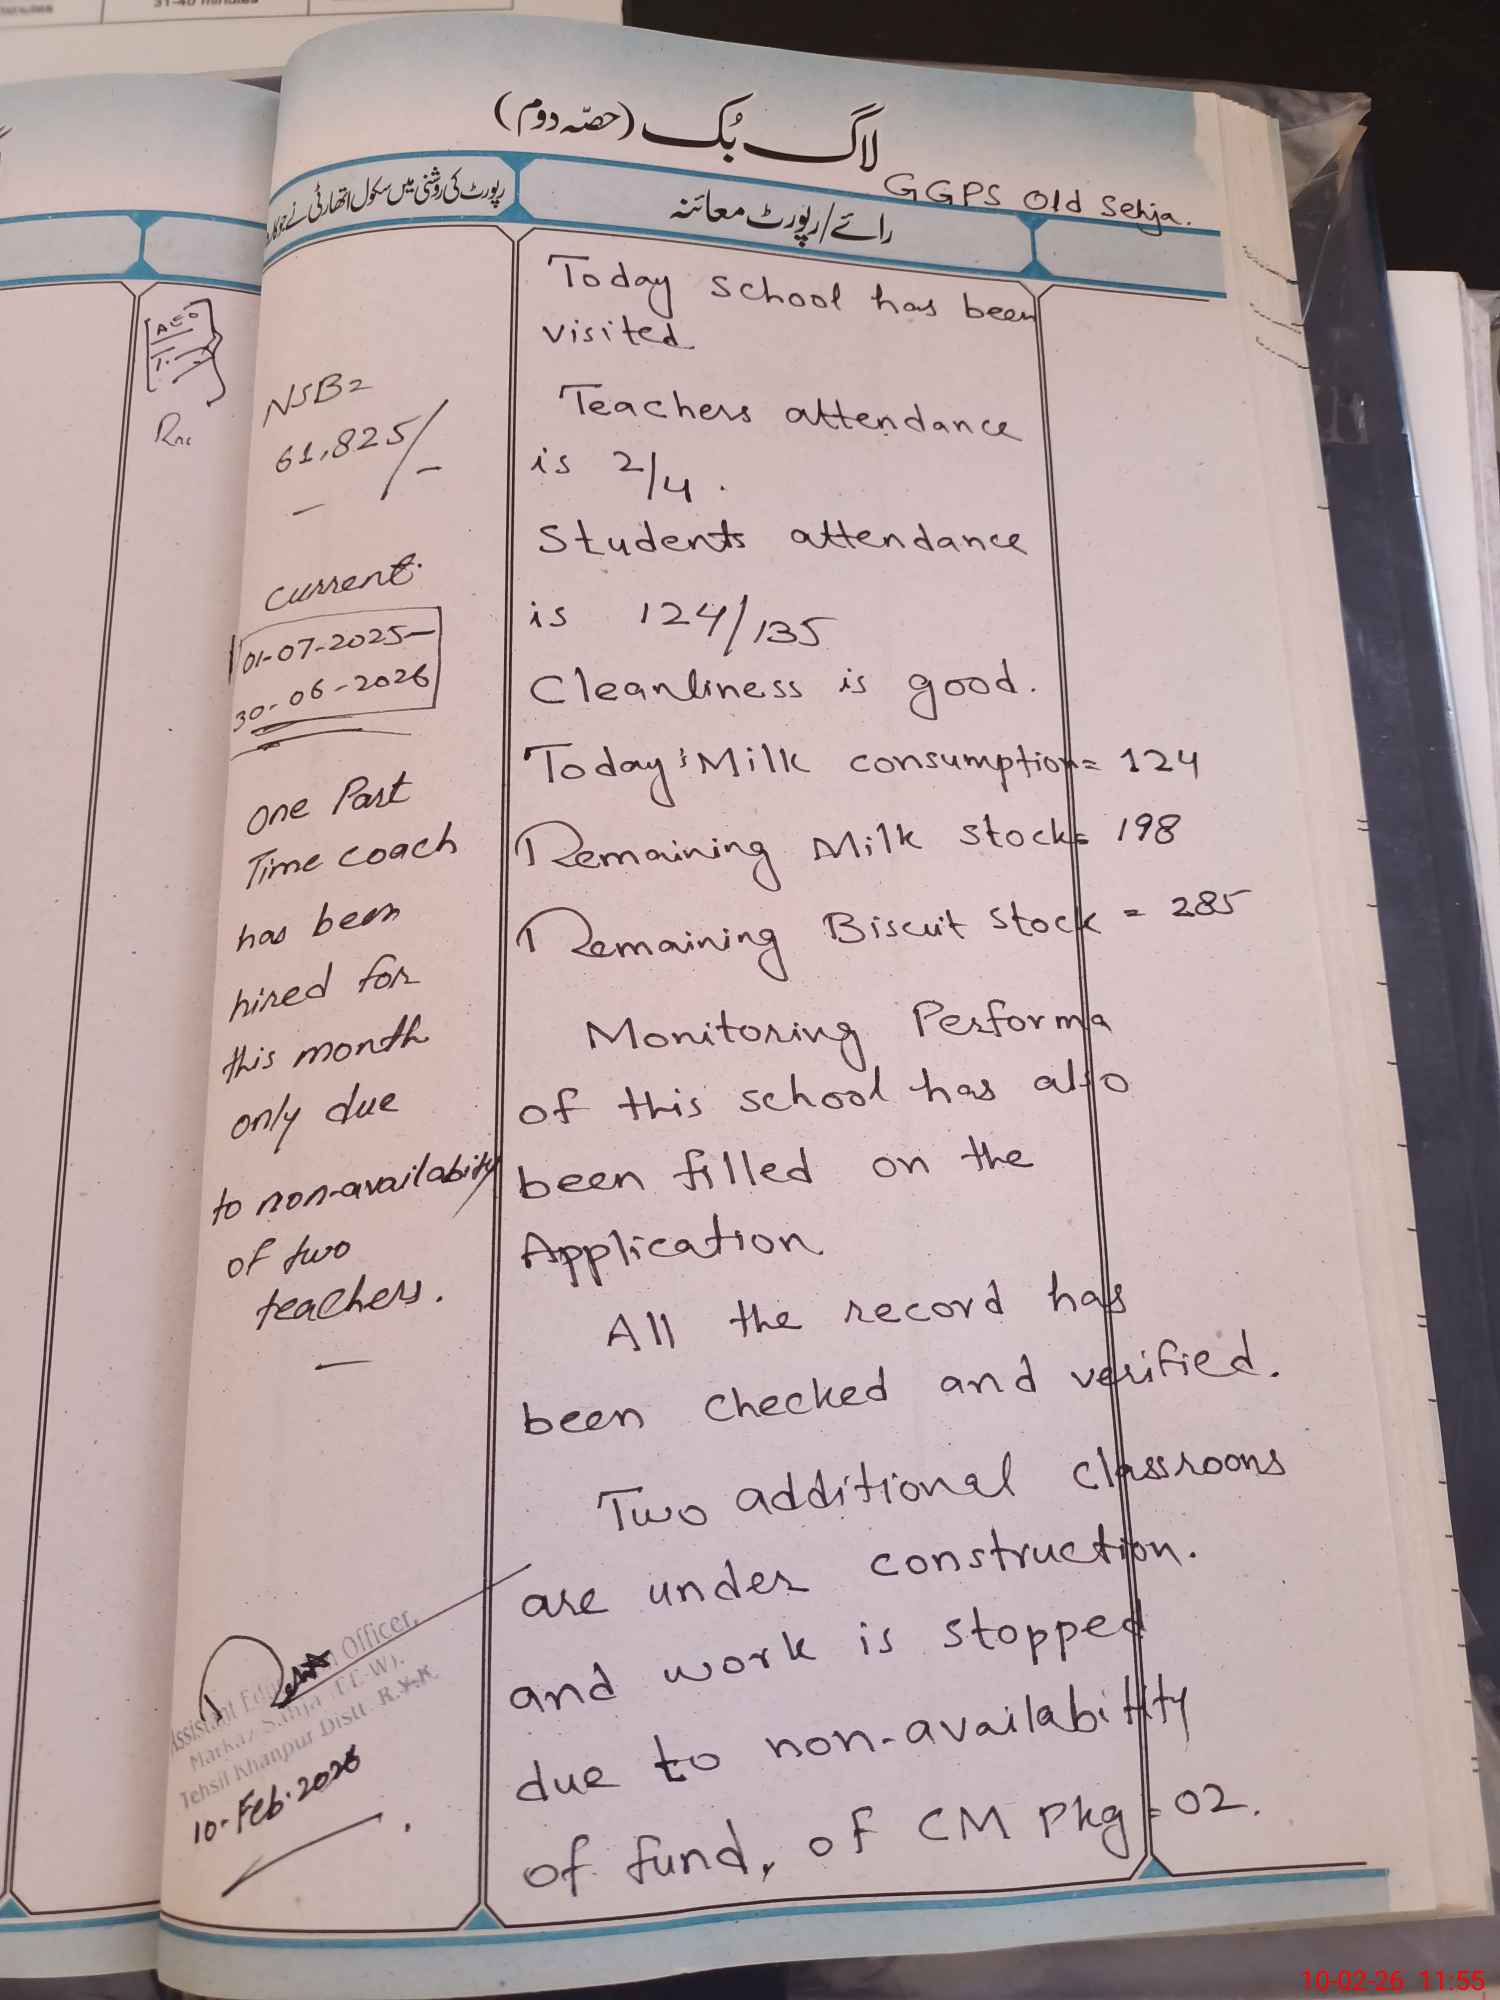 31-40 minutes
لاگ بُک (حصّہ دوم)
GGPS Old Sehja.
رائے/رپورٹ معائنہ
رپورٹ کی روشنی میں سکول اتھارٹی نے جو
Today school has been
visited
Teachers attendance
is 2/4.
Students attendance
is 124/135
Cleanliness is good.
Today's Milk consumption= 124
Remaining Milk stock= 198
Remaining Biscuit stock = 285
Monitoring Performa
of this school has also
been filled on the
Application
All the record has
been checked and verified.
Two additional classrooms
are under construction.
and work is stopped
due to non-availability
of fund, of CM Pkg-02.
NSB=
61,825/-
current.
01-07-2025-
30-06-2026
one Part
Time coach
has been
hired for
this month
only due
to non-availabity
of two
teachers.
Assistant Officer,
Markaz Sahja (EE-W).
Tehsil Khanpur Distt. R.Y.K
10-Feb.2026
AEO
10-02-26 11:55